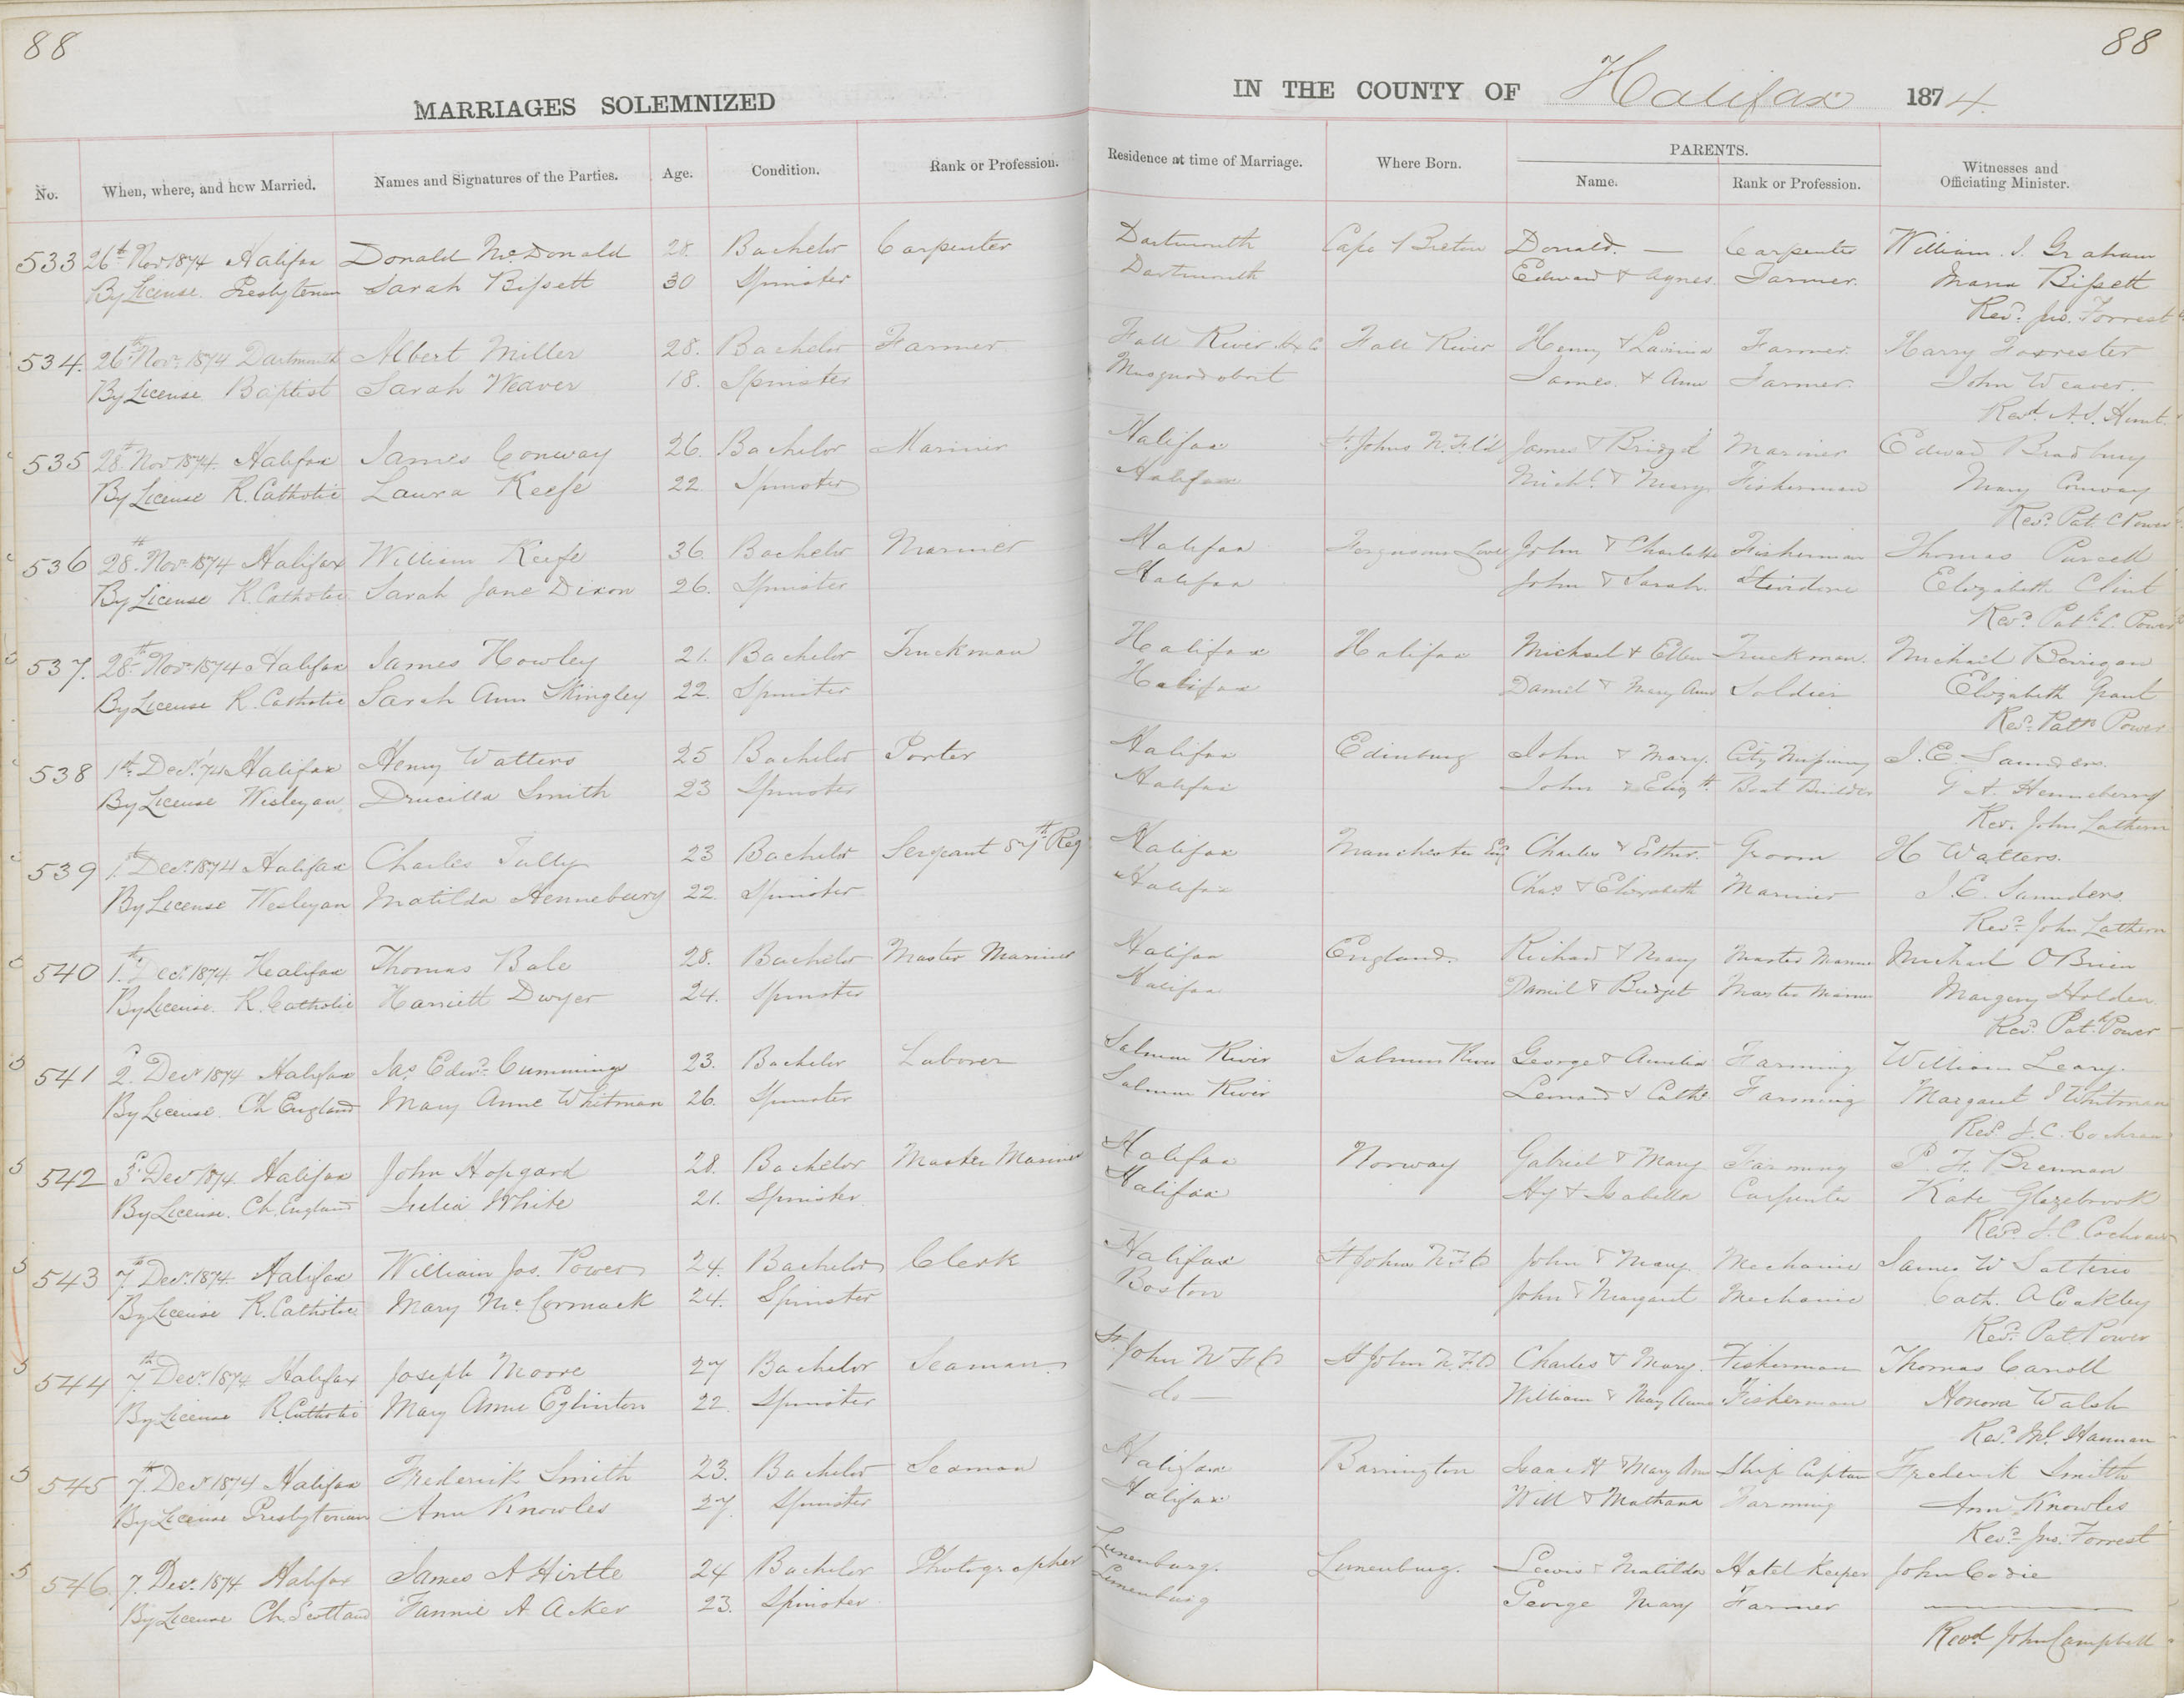 88
88
MARRIAGES SOLEMNIZED
IN THE COUNTY OF Halifax 1874.
No. When, where, and how Married. Names and Signatures of the Parties. Age. Condition. Rank or Profession. Residence at time of Marriage. Where Born. PARENTS. Name. Rank or Profession. Witnesses and Officiating Minister.
533 26th Nov 1874 Halifax Donald McDonald 28. Bachelor Carpenter Dartmouth Cape Breton Donald. — Carpenter William J. Graham
By License. Presbyterian Sarah Bissett 30 Spinster Dartmouth Edward & Agnes. Farmer. Maria Bissett
Revd. Jno. Forrest
534. 26th Novr 1874 Dartmouth Albert Miller 28. Bachelor Farmer Fall River Hx Co Fall River Henry & Lavinia Farmer. Harry Forrester
By License Baptist Sarah Weaver 18. Spinster Musquodoboit James. & Ann Farmer. John Weaver.
Revd. A.S. Hunt.
535 28th Nov 1874. Halifax James Conway 26. Bachelor Mariner Halifax St. Johns N.F.l'd James & Bridget Mariner Edward Bradbury
By License R. Catholic Laura Keefe 22 Spinster Halifax Michl. & Mary Fisherman Mary Conway
Revd. Pat C Power
536 28th Novr 1874 Halifax William Keefe 36 Bachelor Mariner Halifax Fergusons Cove John & Charlotte Fisherman Thomas Purcell
By License R. Catholic Sarah Jane Dixon 26. Spinster Halifax John & Sarah. Stividore Elizabeth Clint
Revd. Patk. C. Power
537. 28th Novr 1874 Halifax James Howley 21. Bachelor Truckman Halifax Halifax Michael & Ellen Truckman. Michael Berrigan
By License R. Catholic Sarah Ann Skingley 22. Spinster Halifax Daniel & Mary Ann Soldier Elizabeth Grant
Revd. Patk Power
538 1st. Decr. '74 Halifax Henry Watters 25 Bachelor Porter Halifax Edinburg John & Mary. City Missionary J. E. Saunders.
By License Wesleyan Drucilla Smith 23 Spinster Halifax John & Elizth. Boat Builder G A. Henneberry
Rev. John Lathern
539 1st Decr. 1874 Halifax Charles Tully 23 Bachelor Sergeant 87th Reg Halifax Manchester Eng Charles & Esther. Groom H Watters.
By License Wesleyan Matilda Henneburg 22. Spinster Halifax Chas & Elizabeth Mariner J. E. Saunders.
Revd. John Lathern
540 1st. Decr. 1874. Halifax Thomas Bale 28. Bachelor Master Mariner Halifax England. Richard & Mary Master Mariner Michael O'Brien
By License. R. Catholic Harriett Dwyer 24. Spinster Halifax Daniel & Bridget Master Mariner Margery Holden.
Revd. Patk. Power
541 2d. Decr 1874 Halifax Jas. Edwd. Cummings 23. Bachelor Laborer Salmon River Salmon River George & Aurelia Farming William Leary.
By License. Ch England Mary Anne Whitman 26. Spinster Salmon River Leonard & Cathe. Farming Margaret J Whitman
Revd. J. C. Cochran
542 3d. Decr 1874. Halifax John Hopgard 28. Bachelor Master Mariner Halifax Norway Gabriel & Mary Farming P. H. Brennan
By License. Ch. England Julia White 21. Spinster Halifax Hy & Isabella Carpenter Kate Glazebrook
Revd J. C. Cochran
543 7th Decr. 1874. Halifax William Jos. Power 24. Bachelor Clerk Halifax St Johns N.F.D John & Mary. Mechanic James W
By License R. Catholic Mary McCormack 24. Spinster Boston John & Margaret Mechanic Cath. A Coakley
Revd. Pat Power
544 7th Decr. 1874 Halifax Joseph Moore 27 Bachelor Seaman St. John N F D St John N.F.D Charles & Mary. Fisherman Thomas Carroll
By License R. Catholic Mary Anne Eglinton 22. Spinster — do — William & Mary Anne Fisherman Honora Walsh
Revd. Ml. Hannan
545 7th Decr 1874 Halifax Frederick Smith 23. Bachelor Seaman Halifax Barrington Isaac H & Mary Ann Ship Captain Frederick Smith
By License Presbyterian Ann Knowles 27. Spinster Halifax Will & Mathana Farming Ann Knowles
Revd. Jno. Forrest
546. 7. Decr. 1874 Halifax James A Hirtle 24 Bachelor Photographer Lunenburg. Lunenburg. Lewis & Matilda Hotel Keeper John Codie
By License Ch. Scotland Fannie A. Acker 23. Spinster Lunenburg George Mary Farmer ———
Revd John Campbell